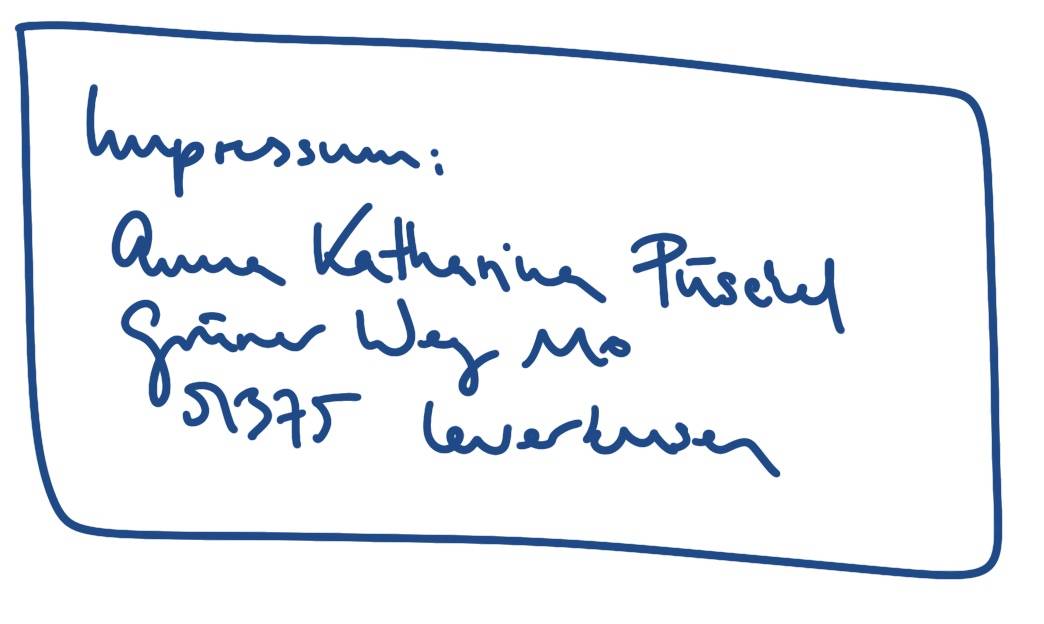 Impressum:
Anna Katharina Püschel
Grüner Weg 110
51375 Leverkusen